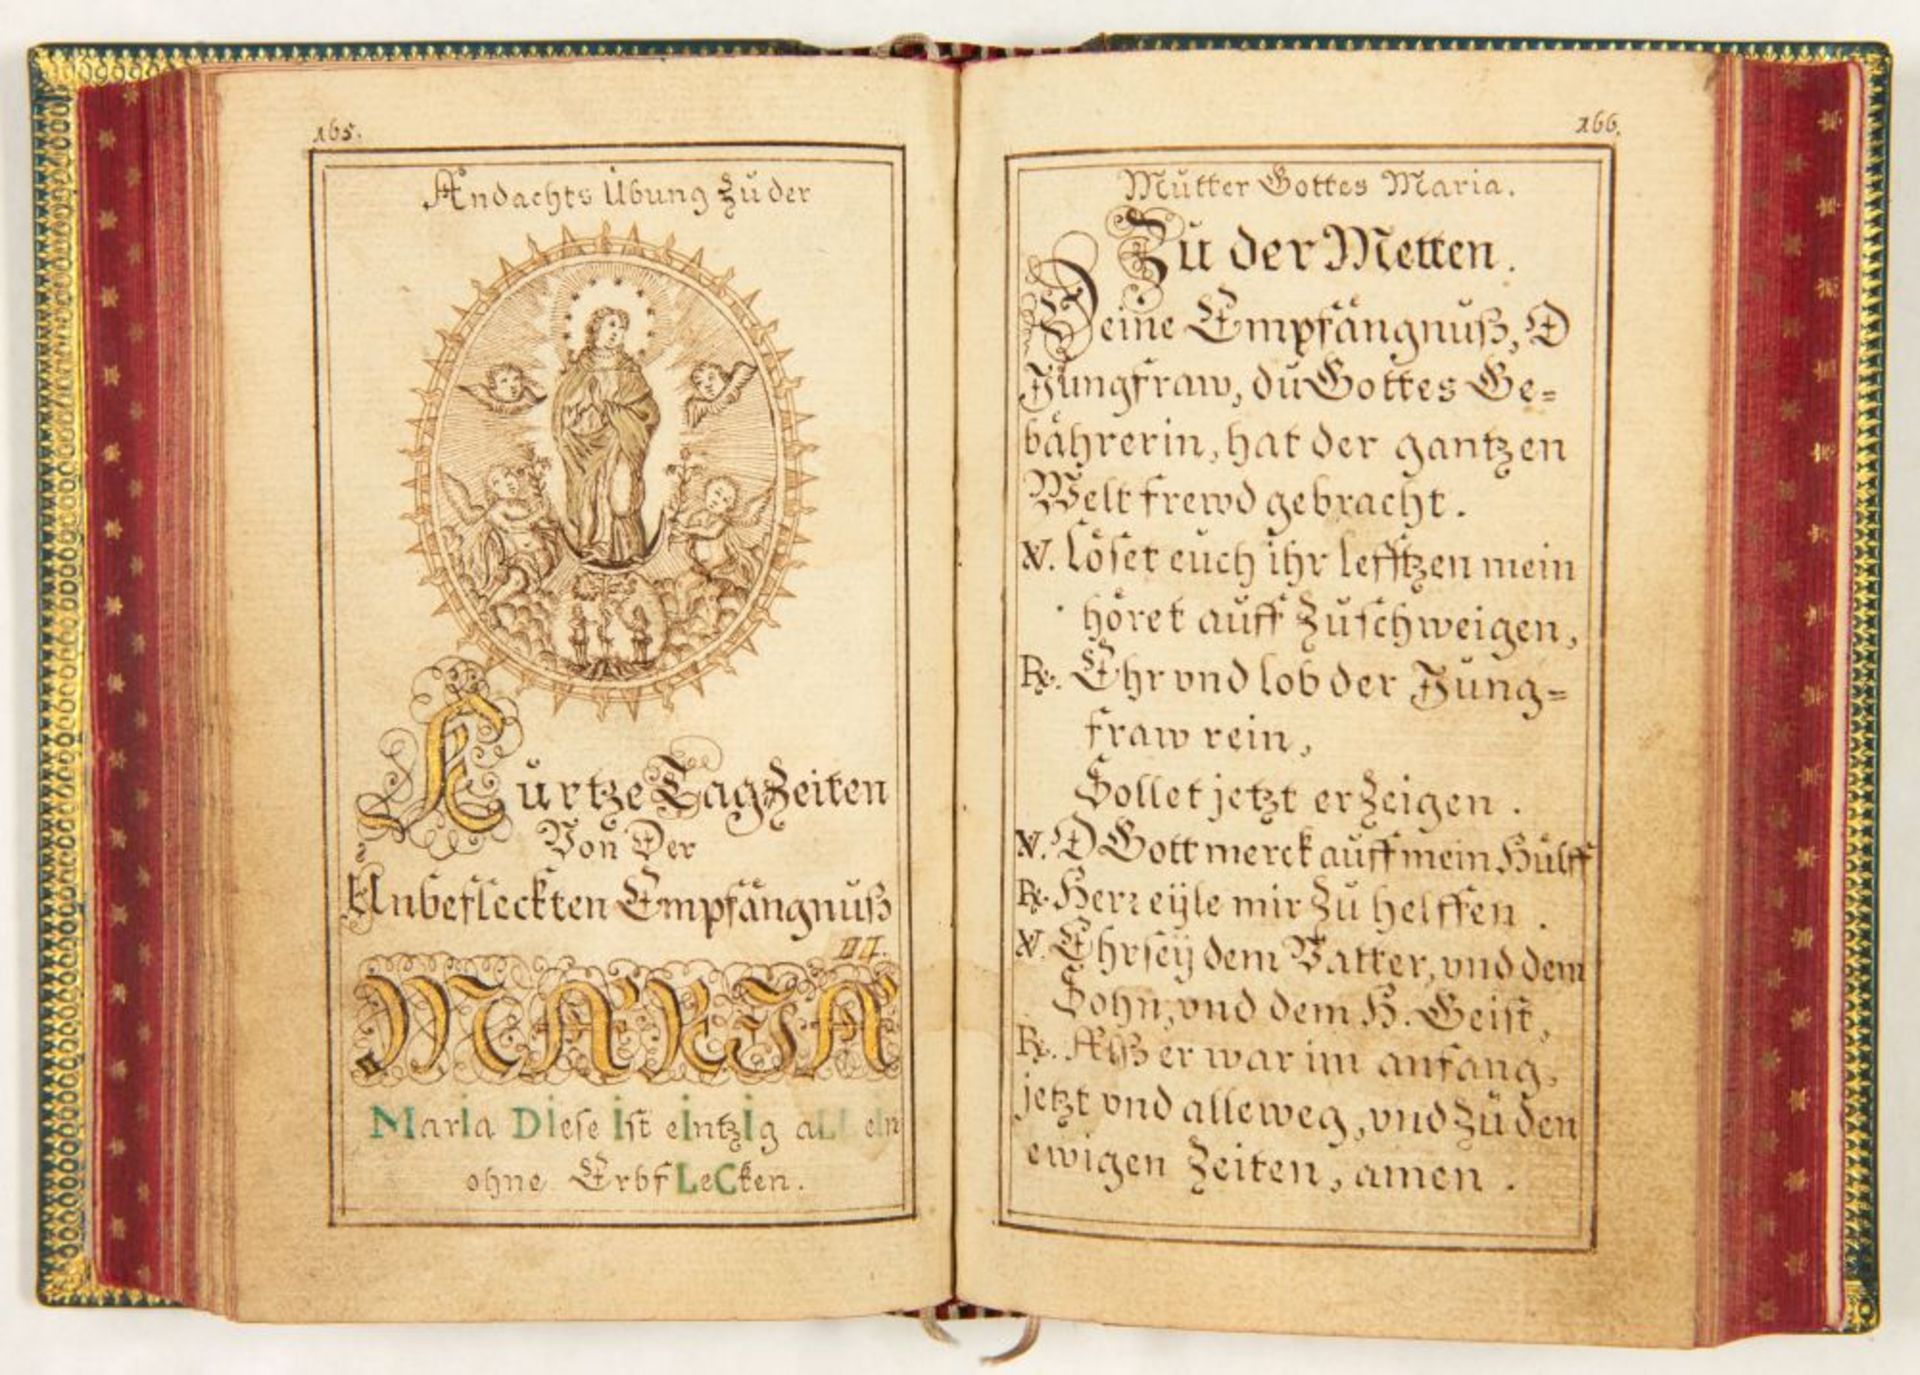 165.
Andachts Übung Zů der
Kůrtze TagZeiten
Von Der
Unbefleckten Empfängnůß
MARIA
MarIa DIese Ist eIntzIg aLLeIn
ohne ErbfLeCken.
166.
Můtter Gottes Maria.
Zů der Metten.
Deine Empfängnůß, O
Jůngfraw, dů Gottes Ge=
bährerin, hat der gantzen
Welt frewd gebracht.
V. Löset eůch ihr lefftzen mein
höret aůff Zůschweigen,
R. Ehr vnd lob der Jůng=
fraw rein,
Sollet jetzt erZeigen.
V. O Gott merck aůff mein Hůlff
R. Herr eÿle mir Zů helffen.
V. Ehr seÿ dem Vatter, vnd dem
Sohn, vnd dem H. Geist,
R. Alß er war im anfang,
jetzt vnd alleweg, vnd Zů den
ewigen Zeiten, amen.